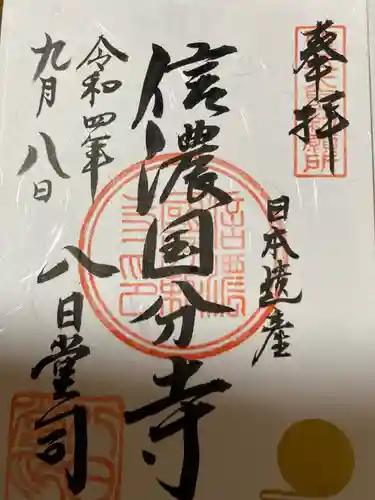 奉拝
日本遺産
信濃国分寺
令和四年
九月八日
八日堂司